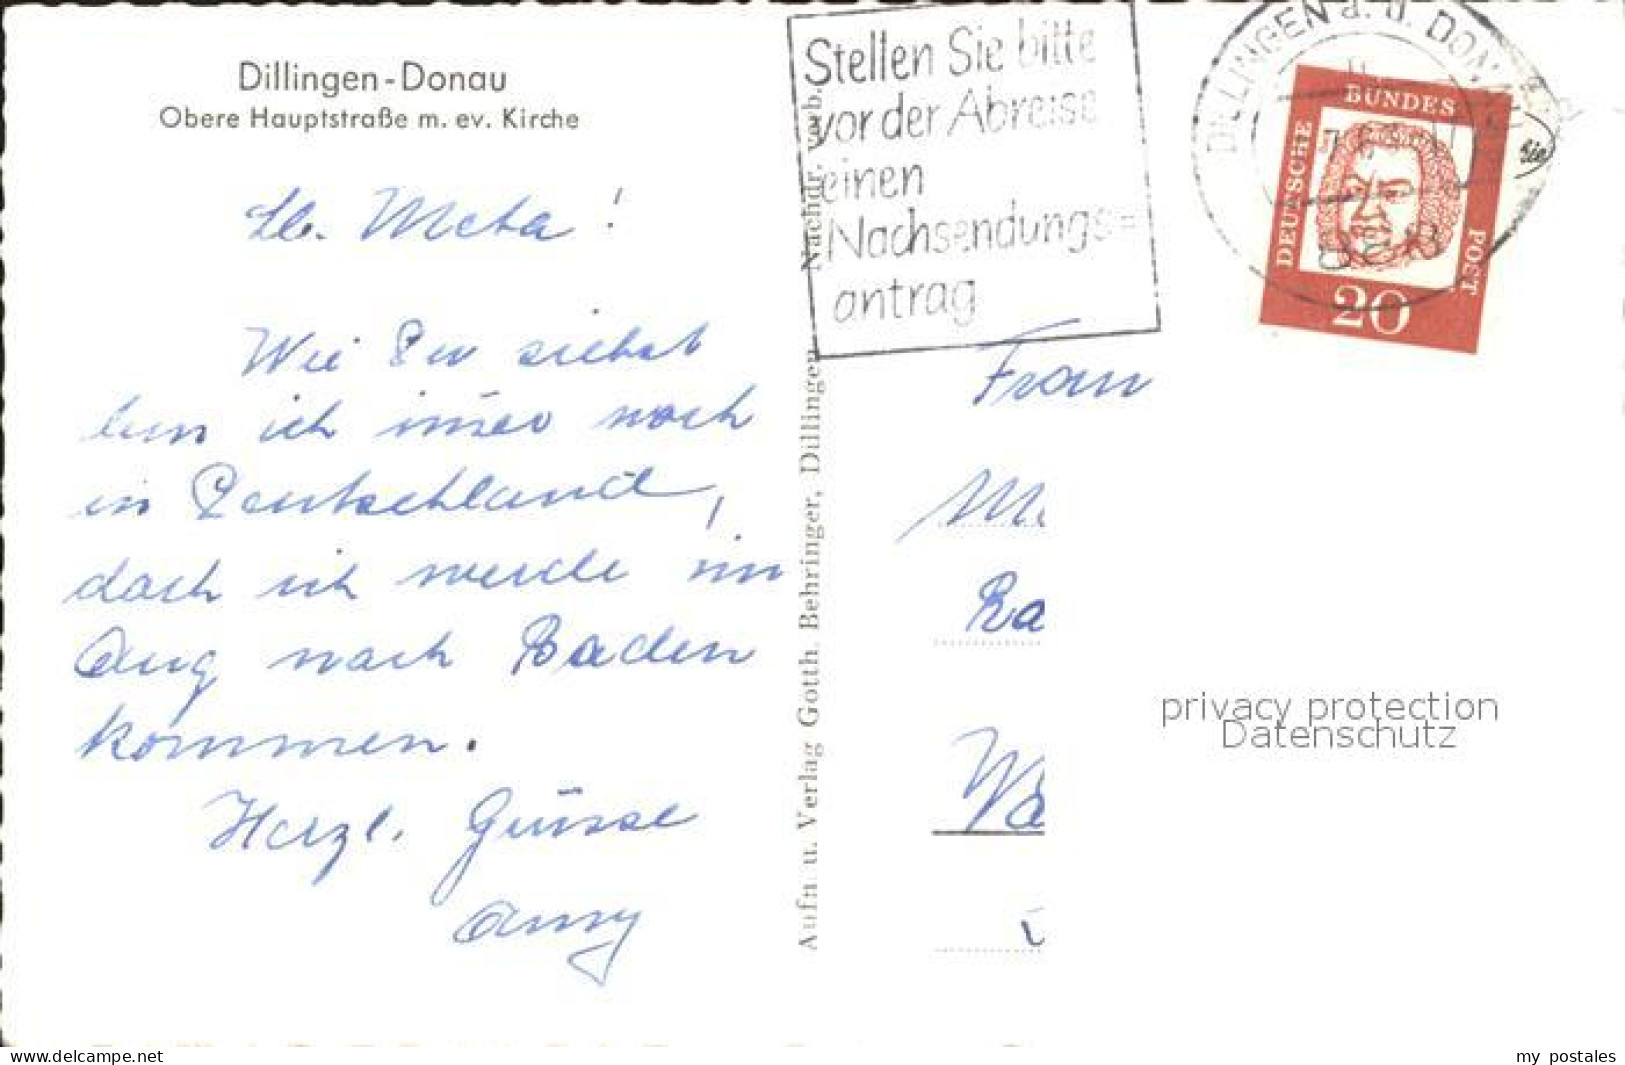 Dillingen-Donau
Obere Hauptstraße m. ev. Kirche
Lb. Meta!
Wie Du siehst
bin ich im̄er noch
in Deutschland,
doch ich werde im
Aug nach Baden
kommen.
Herzl. Grüsse
Anny
Aufn. u. Verlag Gotth. Behringer, Dillingen Nachdr. verb.
Stellen Sie bitte
vor der Abreise
einen
Nachsendungs=
antrag
DILLINGEN a. d. DONAU
DEUSCHE
BUNDES
POST
20
Frau
Ba
privacy protection
Datenschutz
delcampe.net
my_postales